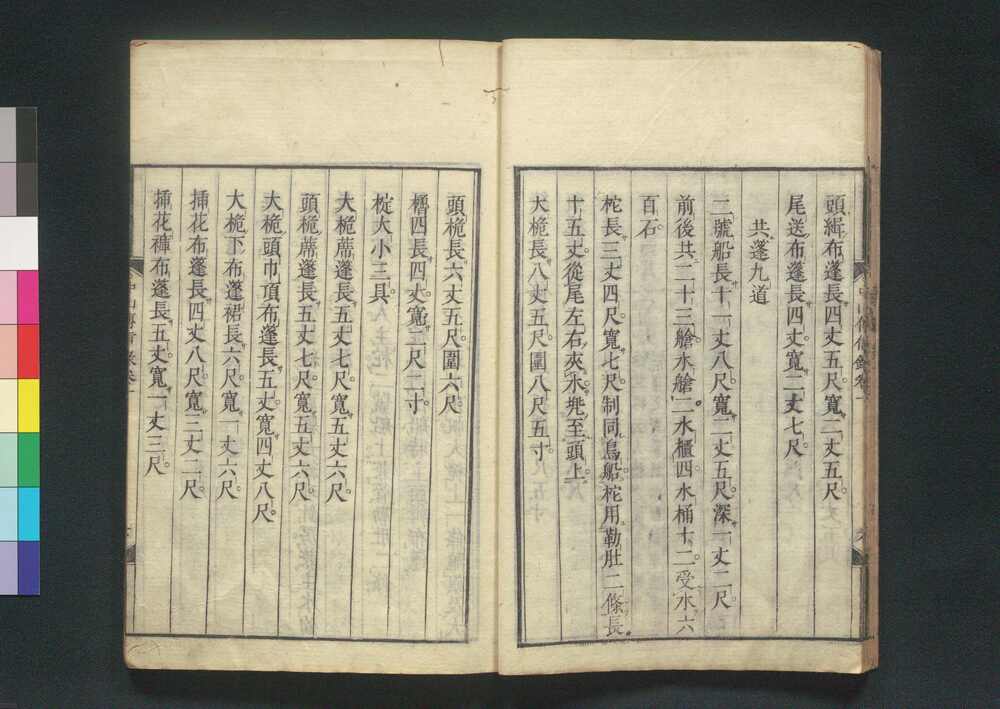 頭緝布蓬長四丈五尺。寬二丈五尺。
尾送布蓬長四丈。寬二丈七尺。
共蓬九道
二號船長十一丈八尺。寬二丈五尺。深一丈二尺。
前後共二十三艙。水艙二。水櫃四。水桶十二。受水六
百石。
柁長三丈四尺。寬七尺。制同鳥船。柁用勒肚二條長
十五丈。從尾左右夾水兠至頭上。
大桅長八丈五尺。圍八尺五寸。
頭桅長六丈五尺。圍六尺。
櫓四。長四丈。寬二尺二寸。
椗大小三具。
大桅蓆蓬長五丈七尺。寬五丈六尺。
頭桅蓆蓬長五丈七尺。寬五丈六尺。
大桅頭巾頂布蓬長五丈。寬四丈八尺。
大桅下布蓬裙長六尺。寬一丈六尺。
揷花布蓬長四丈八尺。寬三丈二尺。
揷花褲布蓬長五丈。寬一丈三尺。
中山傳信錄卷一